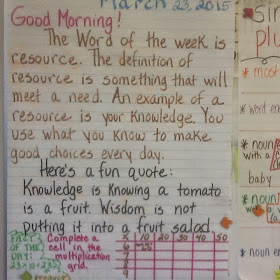 March 23, 2015
Good Morning!
The Word of the week is
resource. The definition of
resource is something that will
meet a need. An example of a
resource is your knowledge. You
use what you know to make
good choices every day.
Here's a fun quote:
Knowledge is knowing a tomato
is a fruit. Wisdom is not
putting it into a fruit salad.
FACT Complete a
OF THE cell in the
DAY: multiplication
23×10=232 grid.
x 10 20 30 40 50
6
7
8
9
plu
* most
* word en
* noun
with a
baby
* noun
with
* noun e